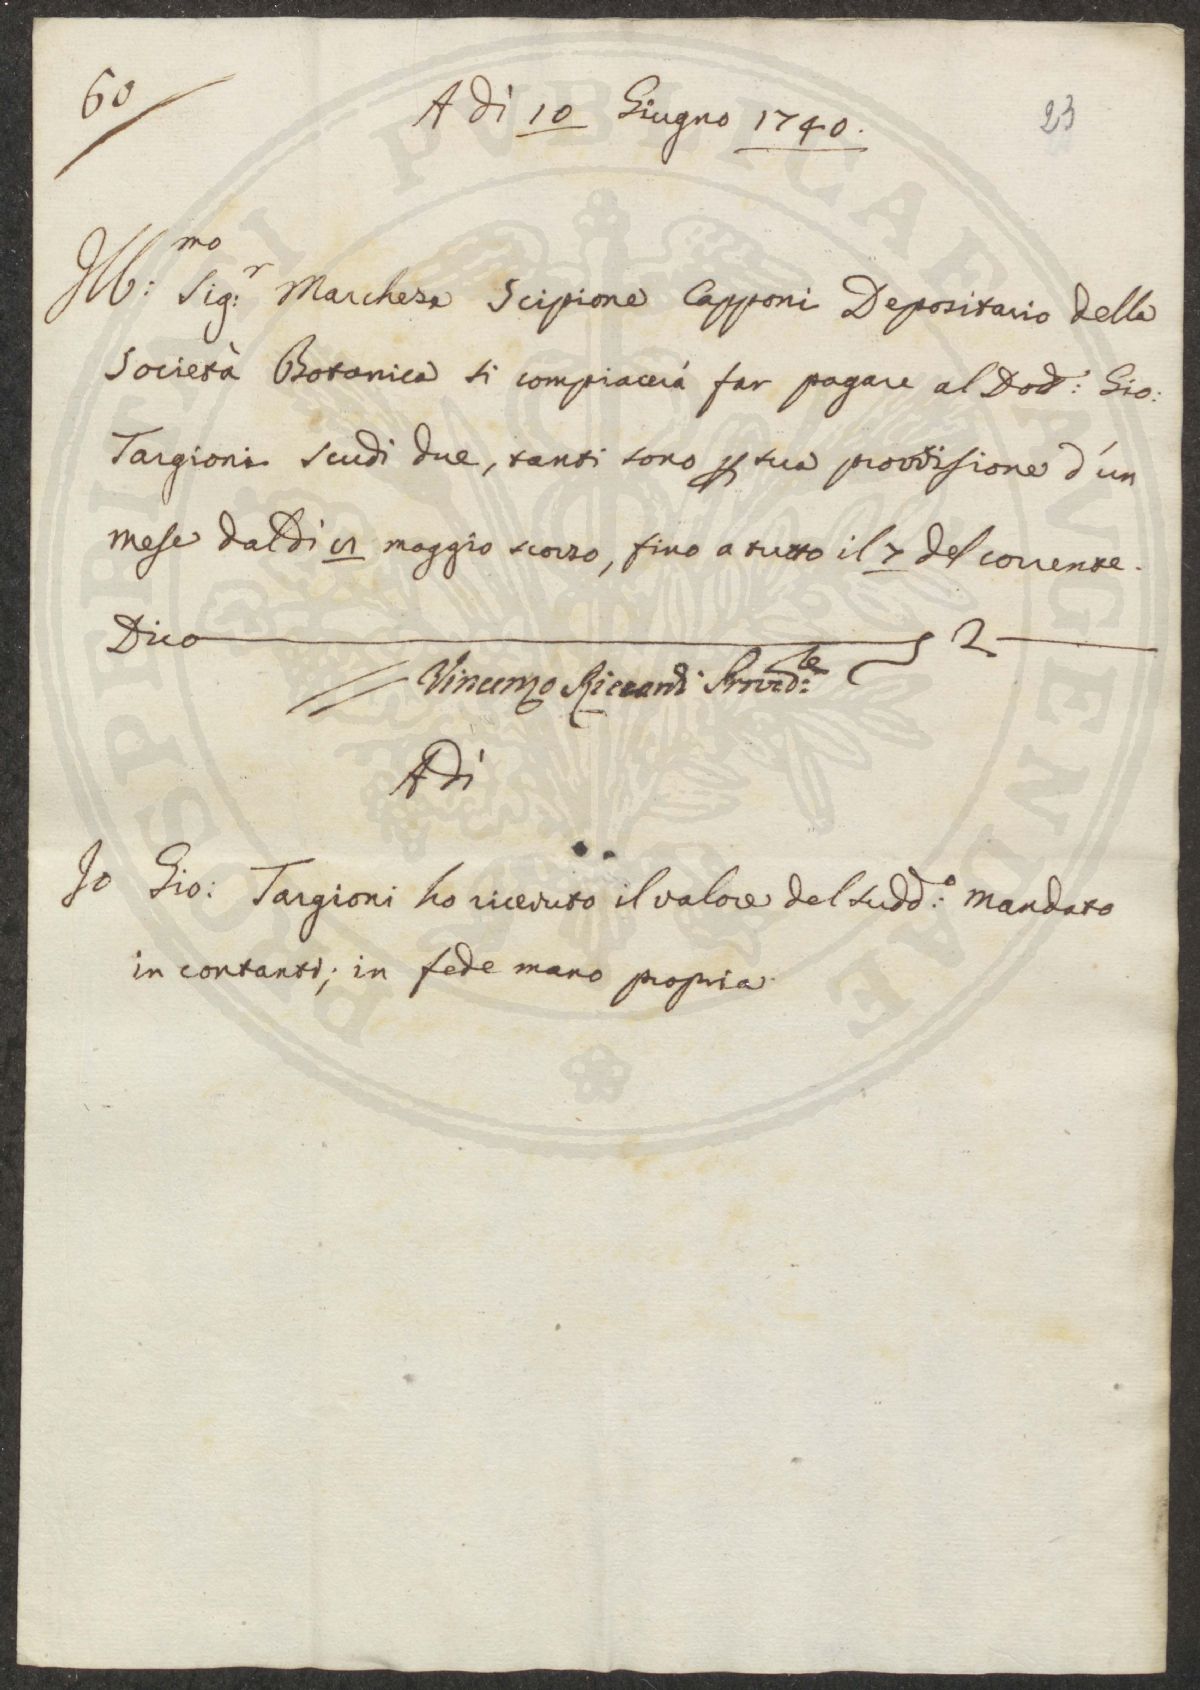 60
A dì 10 Giugno 1740.
23
Ill:mo Sig:r Marchese Scipione Capponi Depositario della
Società Botanica si compiacerà far pagare al Dott: Gio:
Targioni scudi due, tanti sono p sua provvisione d'un
mese dal dì maggio scorso, fino a tutto il 7 del corrente.
Dico 2
Vincenzo Riccardi Provved:re
Adì
Io Gio: Targioni ho ricevuto il valore del sudd:o mandato
in contanti; in fede mano propria
PROSPERITATI PUBLICAE AUGENDAE